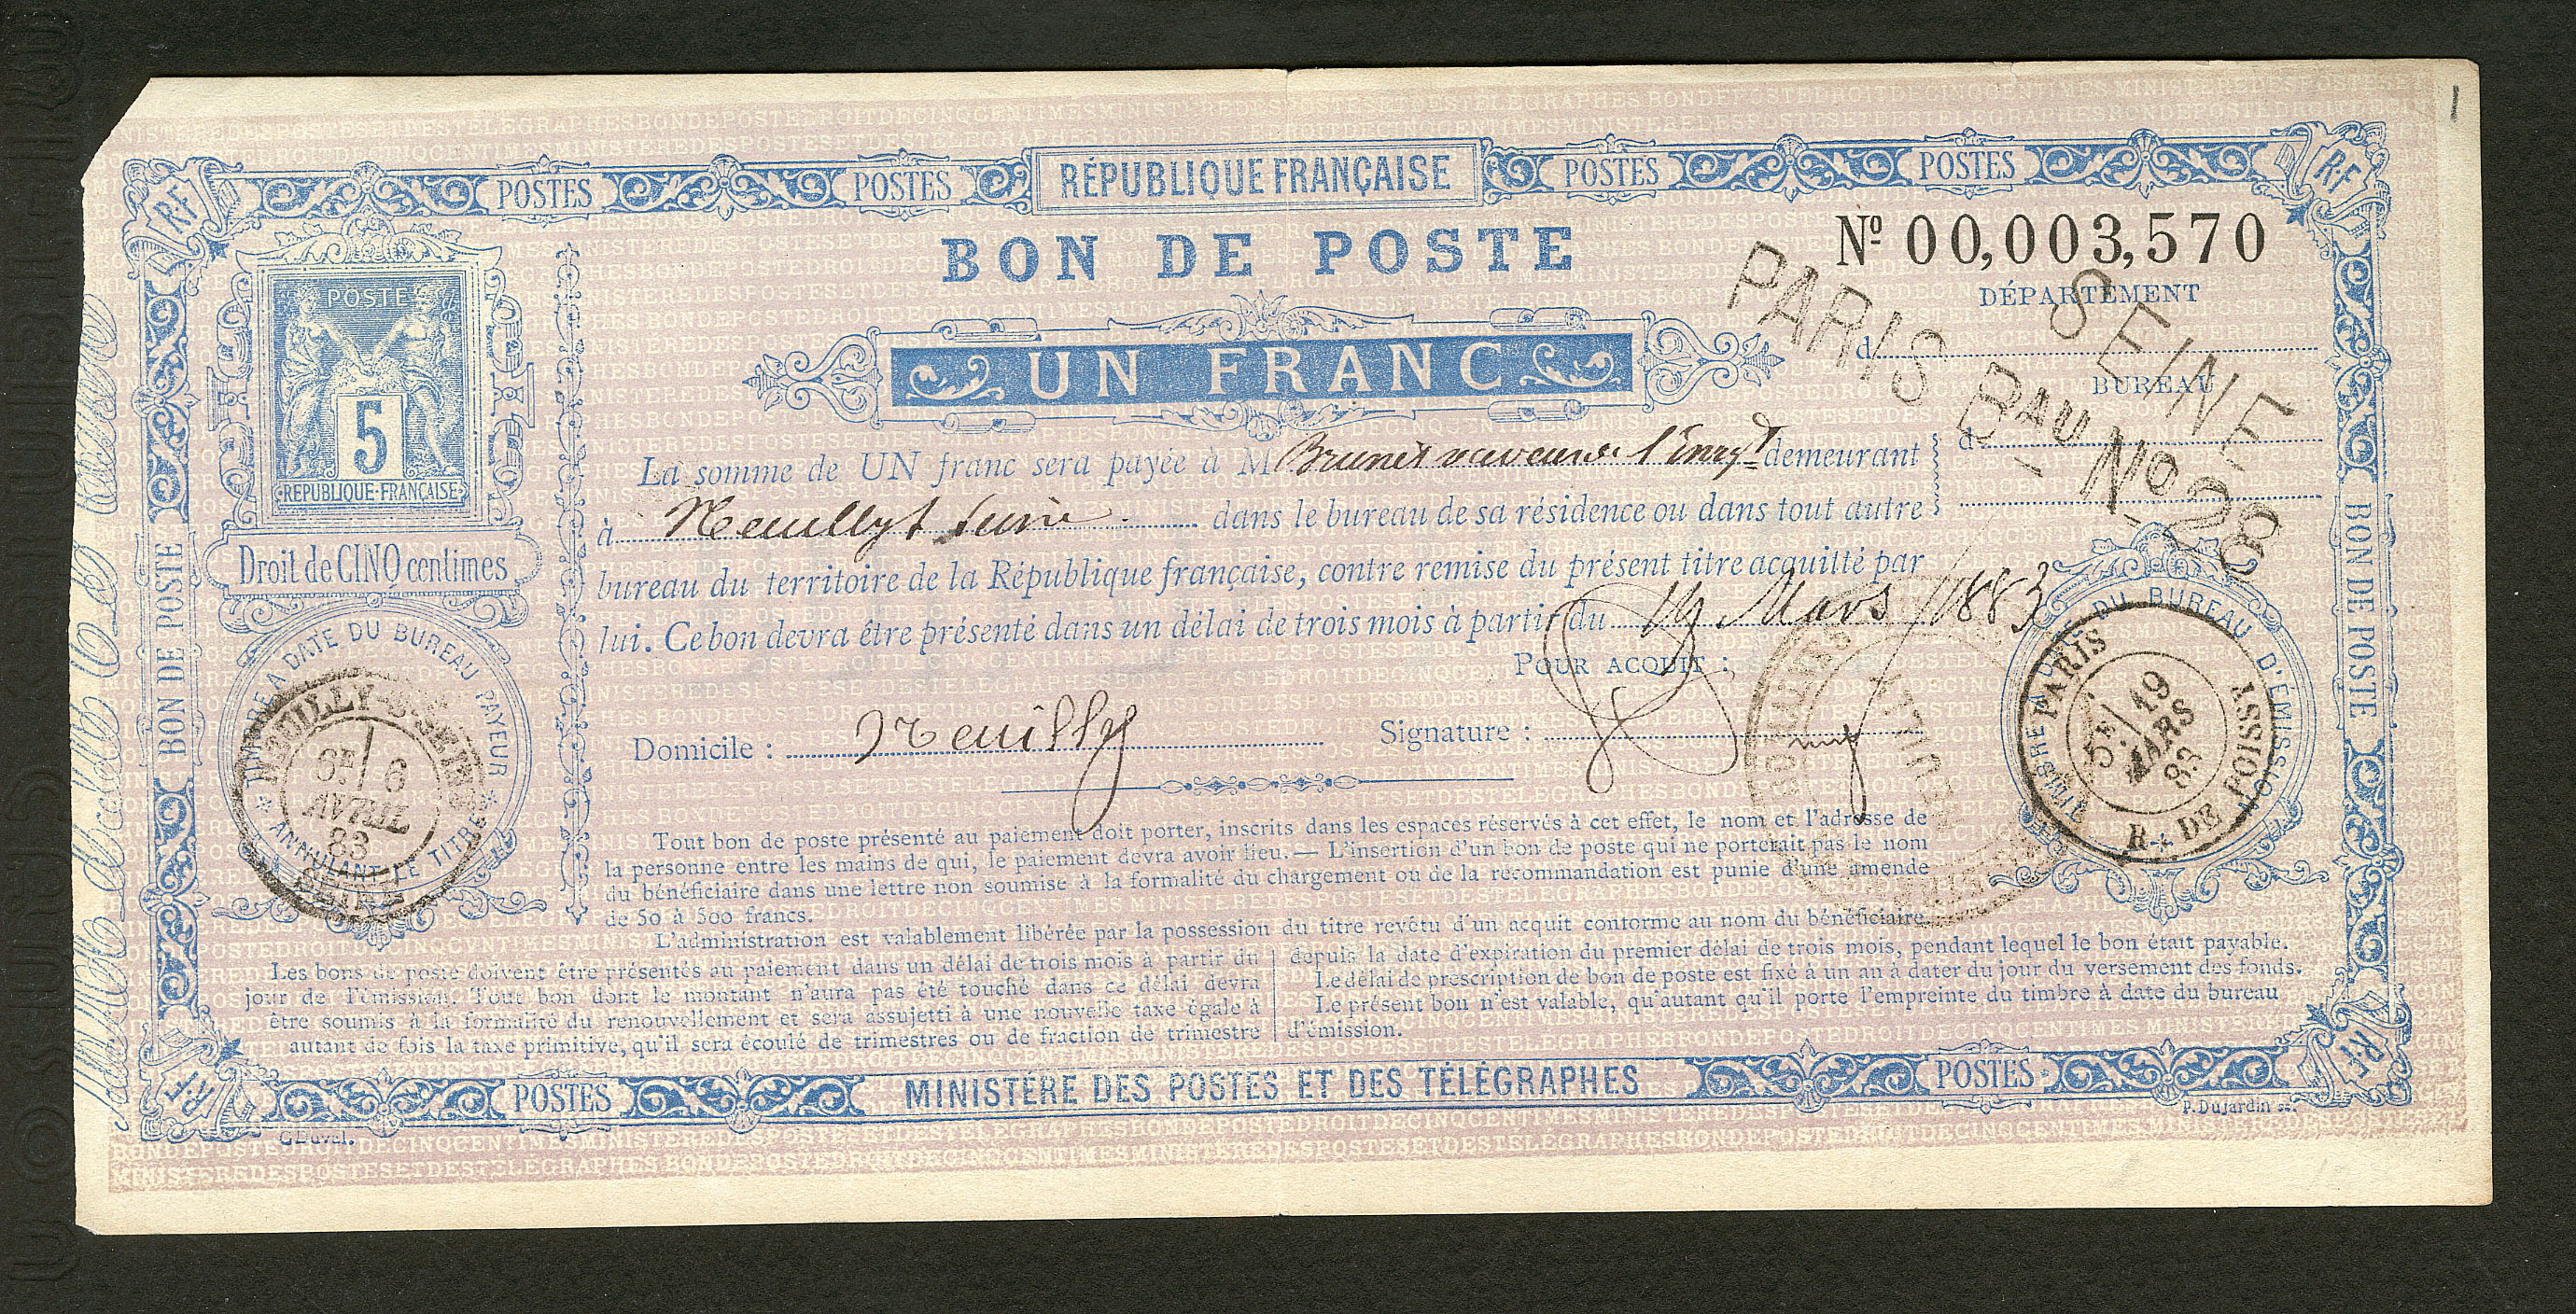 RÉPUBLIQUE FRANÇAISE
POSTES POSTES POSTES POSTES
R·F R·F
BON DE POSTE
Nº 00,003,570
DÉPARTEMENT
SEINE
d
BUREAU
d
PARIS Bᴬᵁ Nº 28
UN FRANC
POSTE
5
REPUBLIQUE·FRANÇAISE
Droit de CINQ centimes
La somme de UN franc sera payée à M Brunet receveur de l'Enregt demeurant
à Neuilly s/ Seine dans le bureau de sa résidence ou dans tout autre
bureau du territoire de la République française, contre remise du présent titre acquitté par
lui. Ce bon devra être présenté dans un délai de trois mois à partir du 19 Mars 1883
POUR ACQUIT :
Domicile : Neuilly Signature :
TIMBRE A DATE DU BUREAU PAYEUR
ANNULANT LE TITRE
NEUILLY-S-SEINE
6E 6
AVRIL
83
SEINE
TIMBRE A DATE DU BUREAU D'ÉMISSION
PARIS
5E 19
MARS
83
R. DE POISSY
Tout bon de poste présenté au paiement doit porter, inscrits dans les espaces réservés à cet effet, le nom et l'adresse de
la personne entre les mains de qui, le paiement devra avoir lieu. — L'insertion d'un bon de poste qui ne porterait pas le nom
du bénéficiaire dans une lettre non soumise à la formalité du chargement ou de la recommandation est punie d'une amende
de 50 à 500 francs.
L'administration est valablement libérée par la possession du titre revêtu d'un acquit conforme au nom du bénéficiaire.
Les bons de poste doivent être présentés au paiement dans un délai de trois mois à partir du
jour de l'émission. Tout bon dont le montant n'aura pas été touché dans ce délai devra
être soumis à la formalité du renouvellement et sera assujetti à une nouvelle taxe égale à
autant de fois la taxe primitive, qu'il sera écoulé de trimestres ou de fraction de trimestre
depuis la date d'expiration du premier délai de trois mois, pendant lequel le bon était payable.
Le délai de prescription de bon de poste est fixé à un an à dater du jour du versement des fonds.
Le présent bon n'est valable, qu'autant qu'il porte l'empreinte du timbre à date du bureau
d'émission.
BON DE POSTE
BON DE POSTE
R·F R·F
POSTES MINISTÈRE DES POSTES ET DES TÉLÉGRAPHES POSTES
G Duval.
P. Dujardin sc.